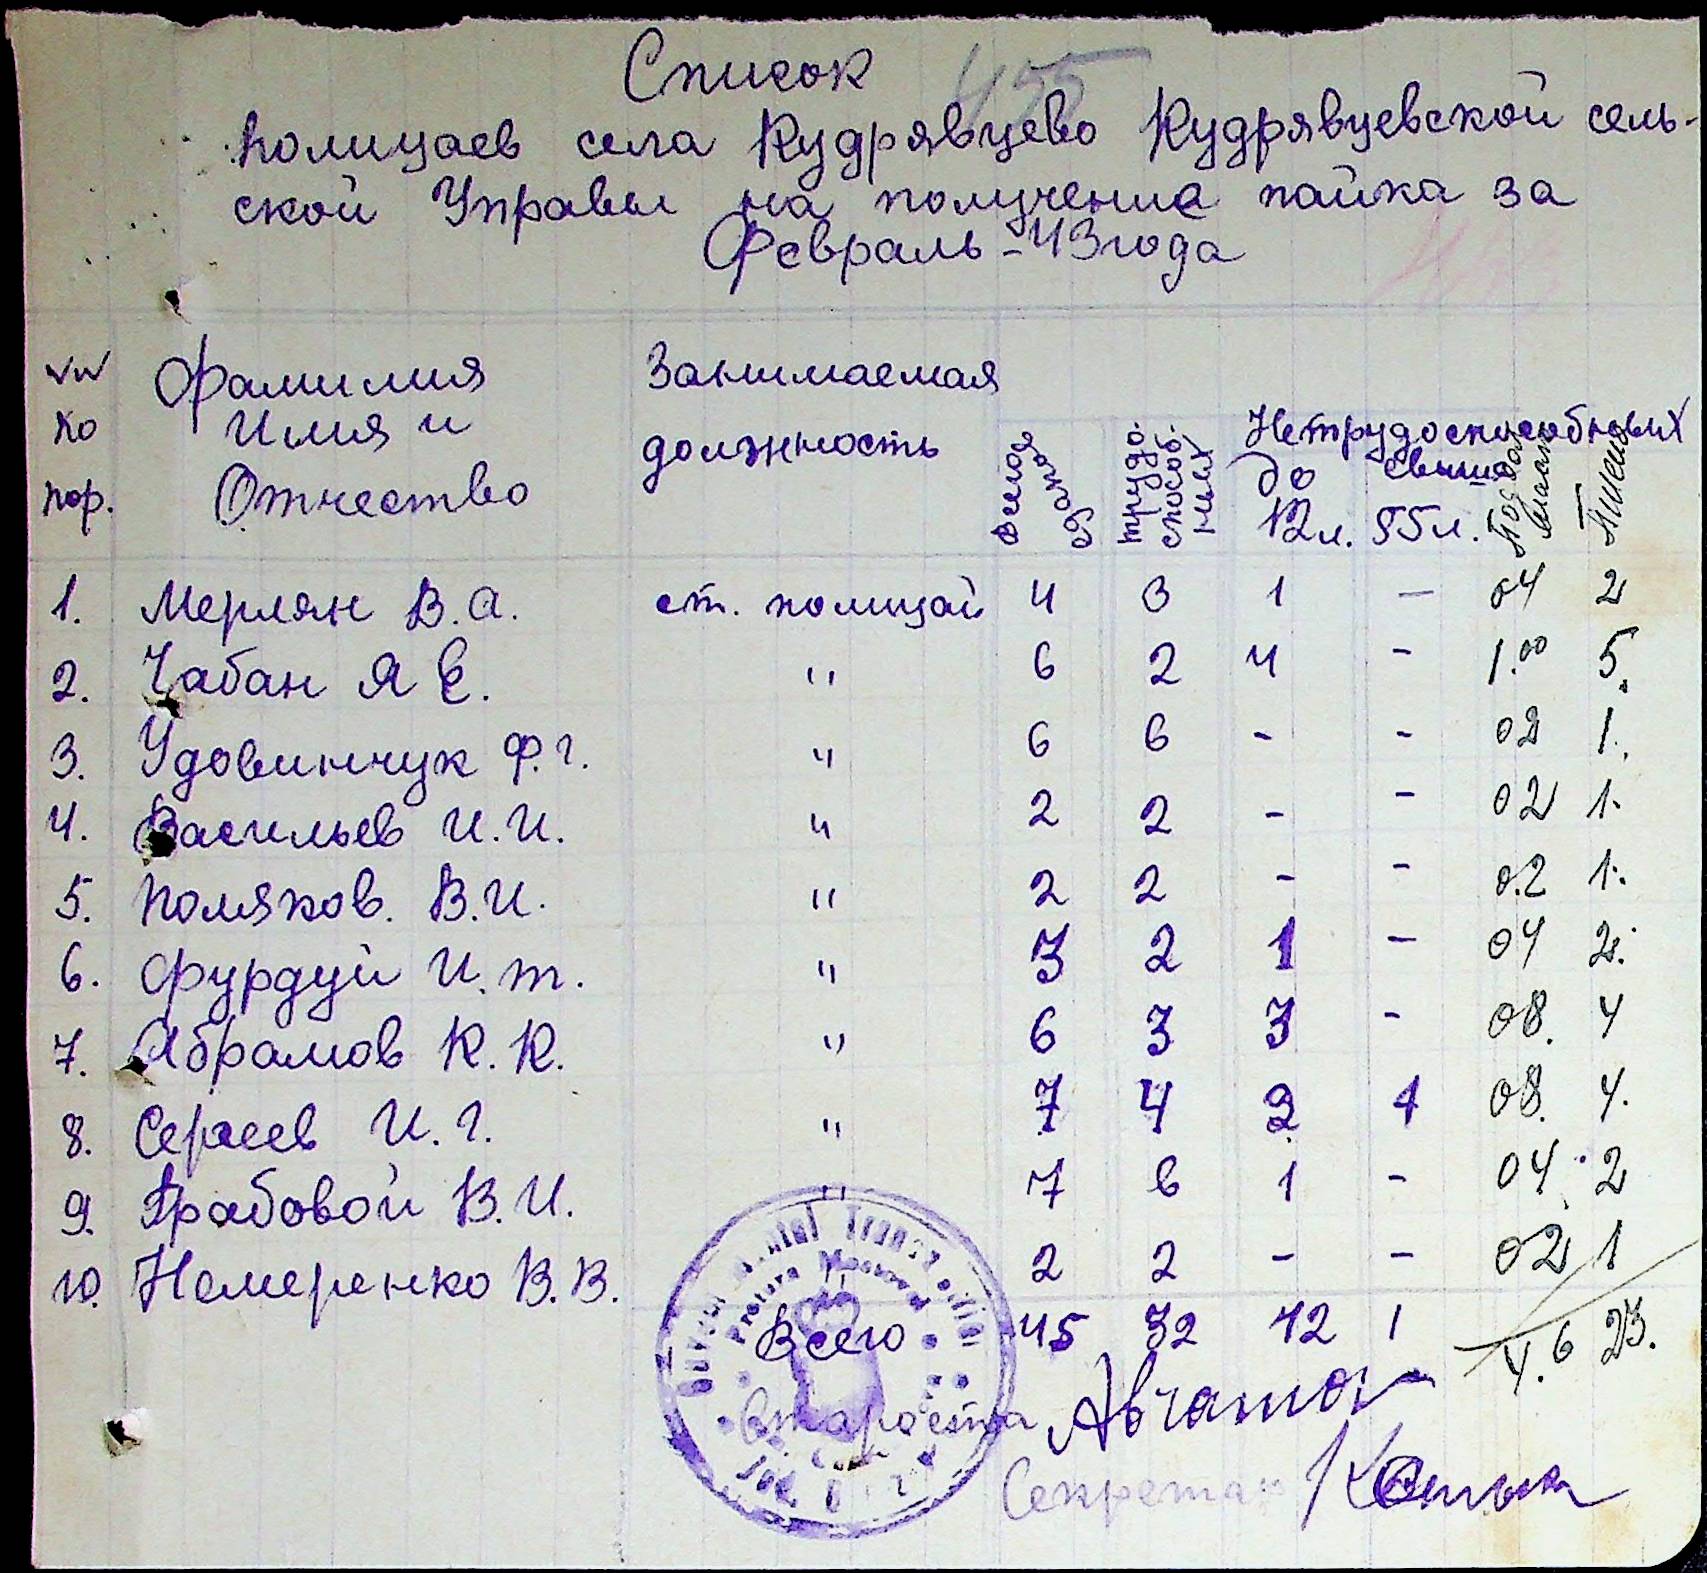 Список
455
полицаев села Кудрявцево Кудрявцевской сель-
ской Управы на получение пайка за
Февраль-43 года
NN Фамилия Занимаемая
по Имя и должность Всего едоков трудоспособ-ных Нетрудоспособных
пор. Отчество до 12 л. свыше 55 л.
1. Мерлян В.А. ст. полицай 4 3 1 — 04 2
2. Чабан Я Е. " 6 2 4 - 1.00 5.
3. Удовинчук Ф.Г. " 6 6 - - 02 1.
4. Васильев И.И. " 2 2 - - 02 1.
5. Поляков. В.И. " 2 2 - - 0.2 1.
6. Фурдуй И.Т. " 3 2 1 - 04 2.
7. Абрамов К.К. " 6 3 3 - 08. 4
8. Сергеев И.Г. " 7 4 2 1 08. 4.
9. Грабовой В.И. " 7 6 1 - 04 2
10. Немеренко В.В. " 2 2 - - 02 1
Всего 45 32 12 1 4.6 23.
Староста
Секретарь